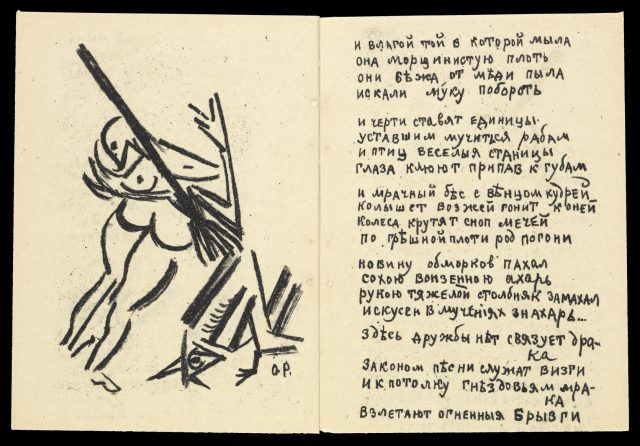 О.Р.
и влагой той в которой мыла
она морщинистую плоть
они бѣжа от мѣди пыла
искали му́ку побороть
и черти ставят единицы
уставшим мучиться рабам
и птиц веселыя станицы
глаза клюют припав к губам
и мрачный бѣс с вѣнцом кудрей
колышет возжей гонит коней
колеса крутят сноп мечей
по грѣшной плоти род погони
новину обмороков пахал
сохою вонзенною ахарь
рукою тяжелой столбняк замахал
искусен в мученіях знахарь...
здѣсь дружбы нѣт связует дра-
ка
законом пѣсни служат визги
и к потолку гнѣздовьям мра-
ка
взлетают огненныя брызги